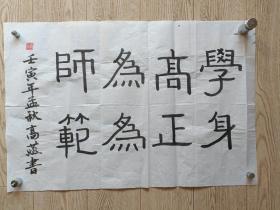 學身
髙正
為為
師範
壬寅年孟秋高蓝書